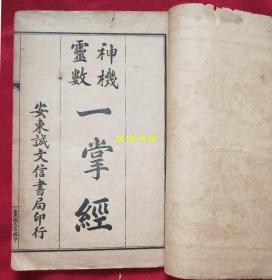 神機
靈數
一掌經
安東誠文信書局印行